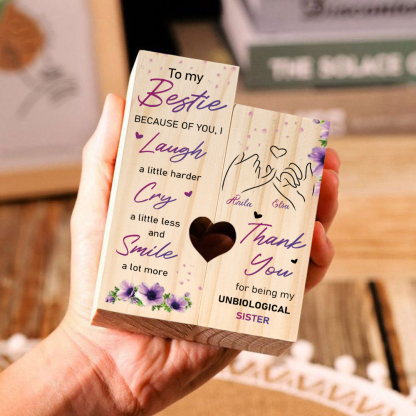 To my
Bestie
BECAUSE OF YOU, I
Laugh
a little harder
Cry
a little less
and
Smile
a lot more
Anita Elsa
Thank
You
for being my
UNBIOLOGICAL
SISTER
THE SOLACE O